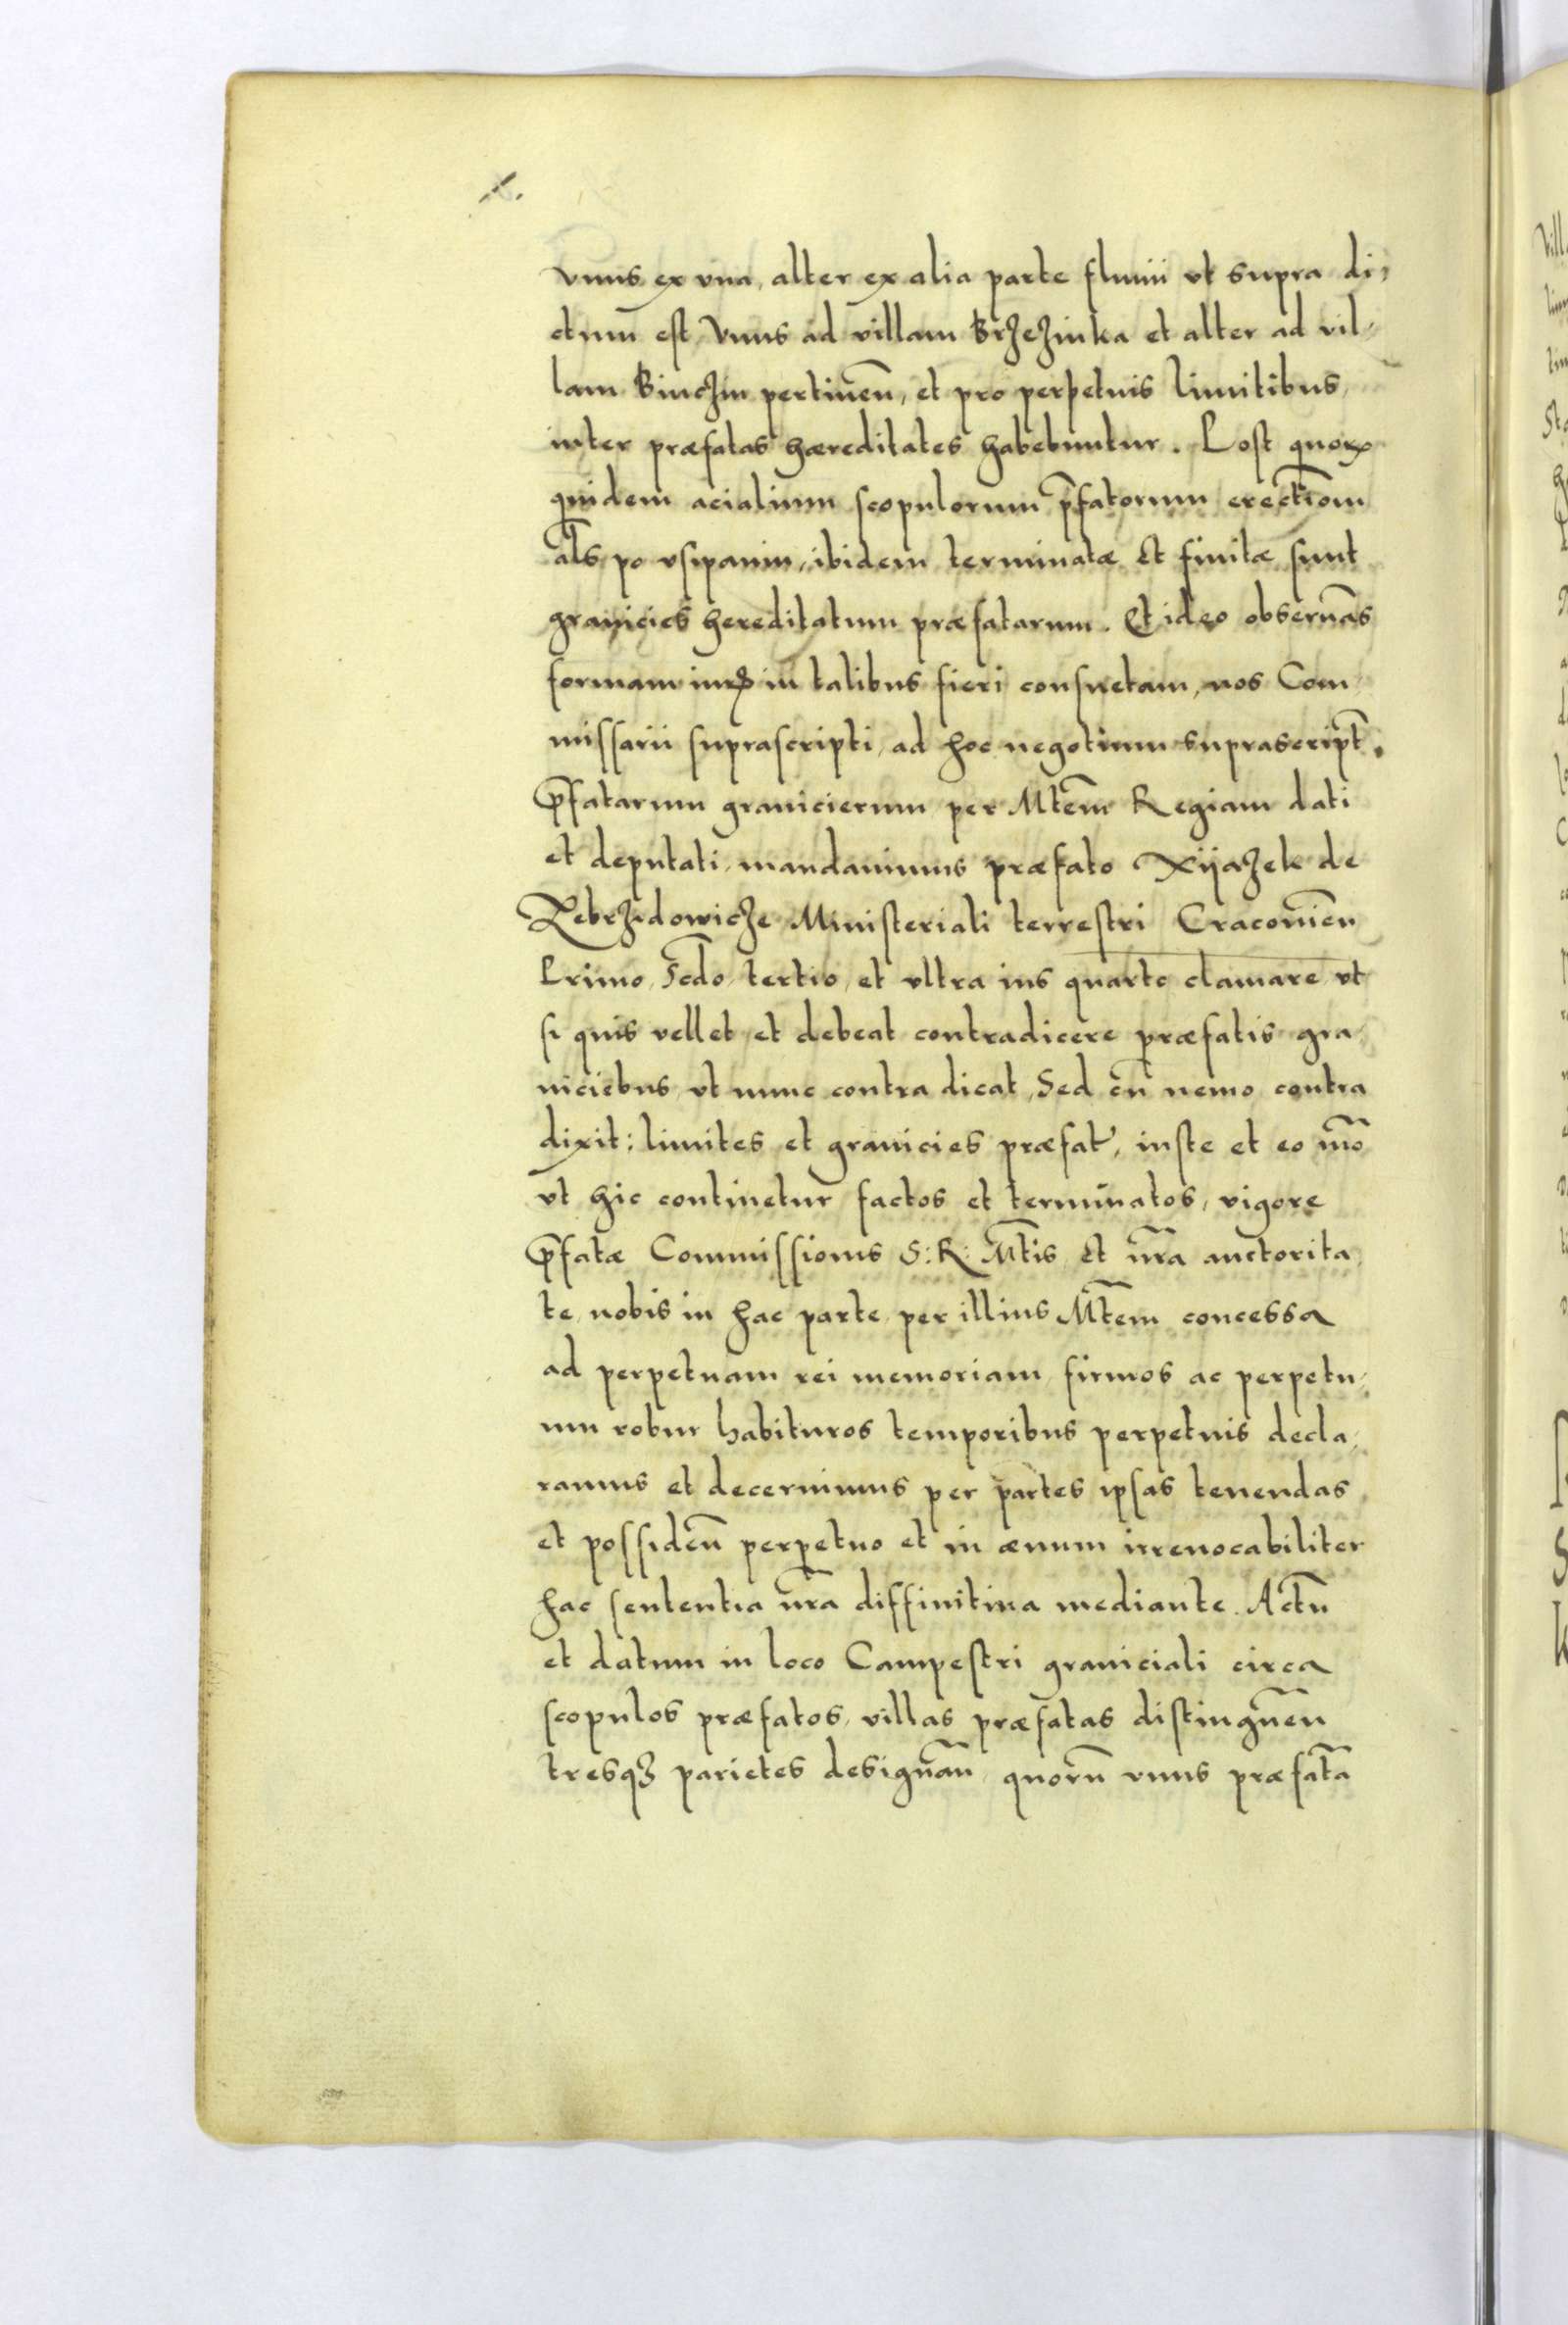 vnus ex vna, alter ex alia parte fluuii vt supra di,
ctum est, Vnus ad villam Brzezinka et alter ad vil,
lam Binczin pertineñ, et pro perpetuis limitibus,
inter præfatas hæreditates habebuntur. Post quorꝝ
quidem acialium scopulorum p̃fatorum erectiom̃
als̃ po vsipaniu, ibidem terminatæ et finitæ sunt
granicies hereditatum præfatarum. Et ideo obseruãs
formam iuris in talibus fieri consuetam, nos Com,
missarii suprascripti, ad hoc negotium suprascript̃.
p̃fatarum granicierum per Mtem̃ Regiam dati
et deputati, mandauimus præfato Xijazek de
Zebrzidowicze Ministeriali terrestri Cracouieñ
Primo, Scdo, tertio, et vltra ius quarto clamare, vt
si quis vellet et debeat contradicere præfatis gra,
niciebus, vt nunc contra dicat, Sed cũ nemo contra
dixit: limites et granicies præfat̃, iuste et eo mõ
vt hic continetur factos et terminatos, vigore
p̃fatæ Commissionis S: R: Mt̃is et nr̃a auctorita,
te nobis in hac parte per illius Mt̃em concessa
ad perpetuam rei memoriam firmos ac perpetu,
um robur habituros temporibus perpetuis decla,
ramus et decernimus per partes ipsas tenendas
et possideñ perpetuo et in æuum irreuocabiliter
hac sententia nr̃a diffinitiua mediante. Actũ
et datum in loco Campestri graniciali circa
scopulos præfatos, villas præfatas distinguẽn
tresqꝫ parietes designãn, quorũ vnus præfatã